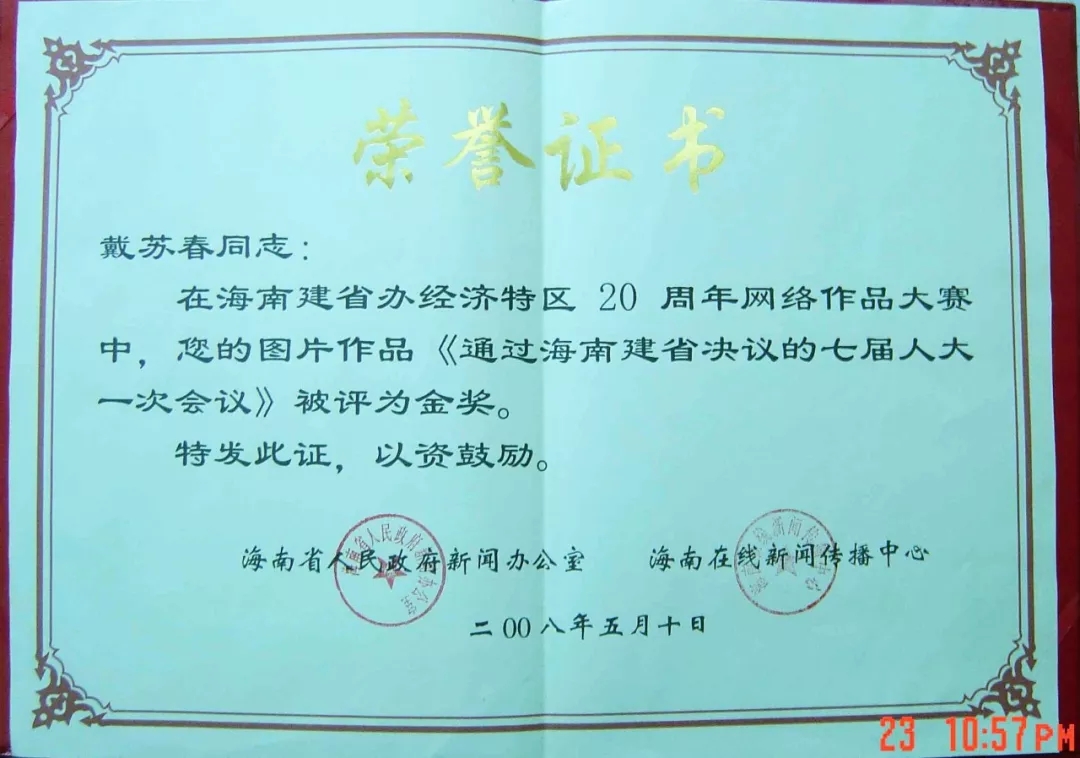 荣誉证书
戴苏春同志：
在海南建省办经济特区 20 周年网络作品大赛
中，您的图片作品《通过海南建省决议的七届人大
一次会议》被评为金奖。
特发此证，以资鼓励。
海南省人民政府新闻办公室 海南在线新闻传播中心
二00八年五月十日
23 10:57PM